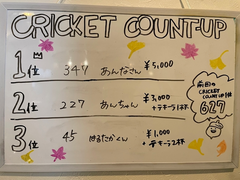 CRICKET COUNT-UP
1位 347 あんなさん ¥5,000
2位 227 あんちゃん ¥3,000
+テキーラ1杯
3位 45 はるたかくん ¥1,000
+テキーラ2杯
前回の
CRICKET
COUNT UP 1位
627